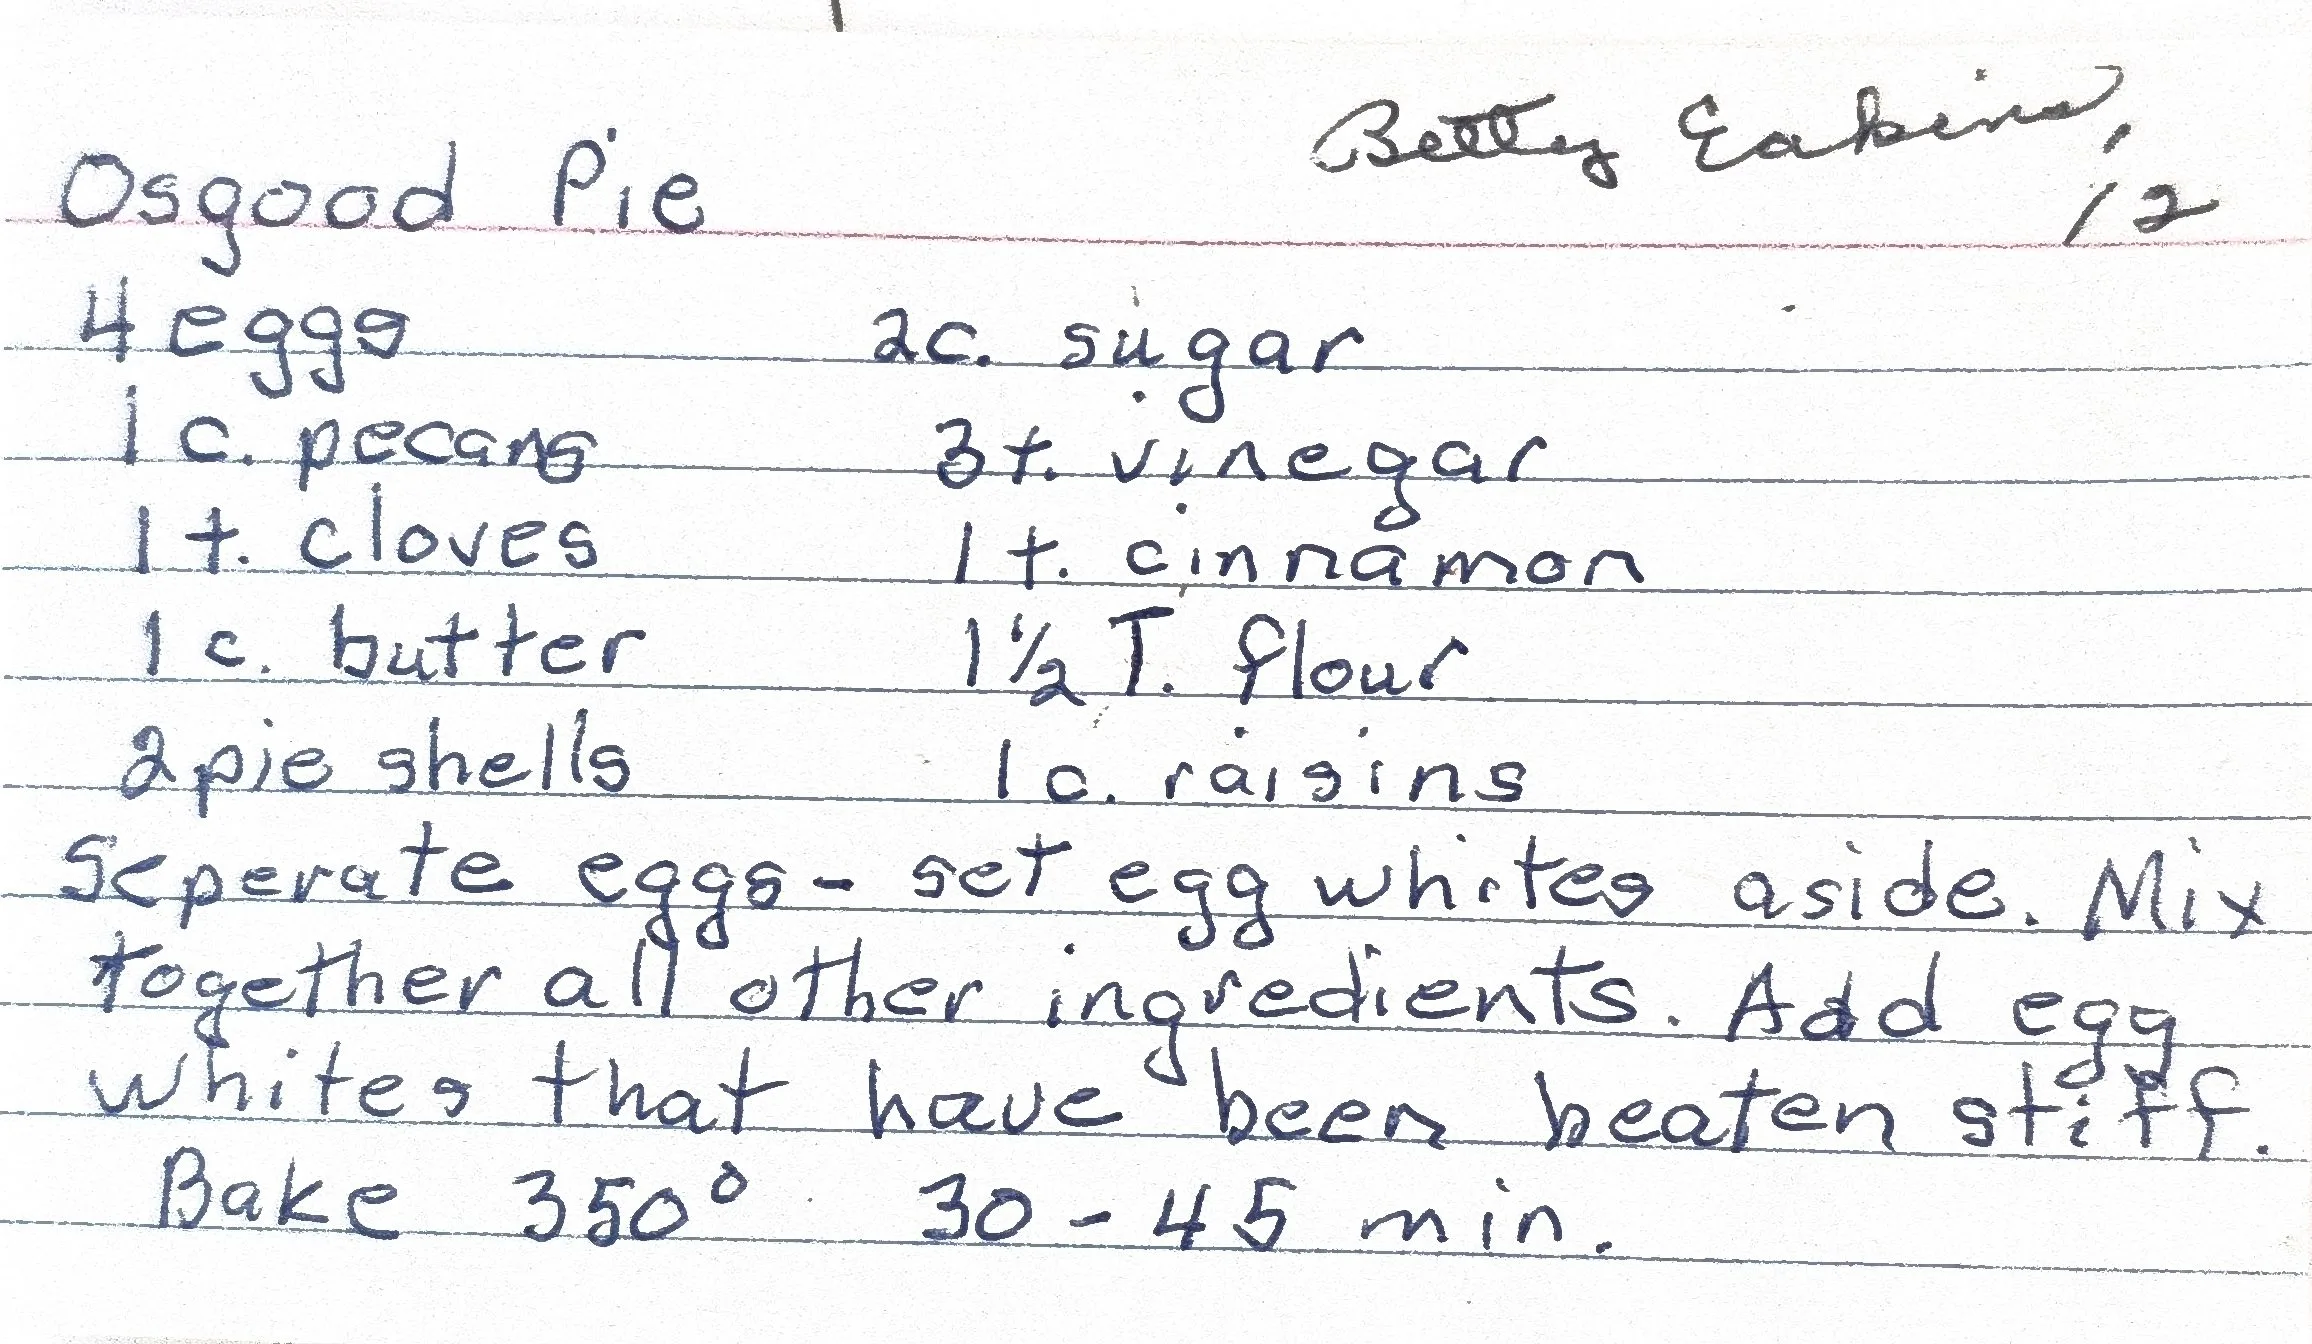 Betty Eakins,
12
Osgood Pie
4 eggs 2c. sugar
1 c. pecans 3 t. vinegar
1 t. cloves 1 t. cinnamon
1 c. butter 1 1/2 T. flour
2 pie shells 1 c. raisins
Seperate eggs - set egg whites aside. Mix
together all other ingredients. Add egg
whites that have been beaten stiff.
Bake 350° 30 - 45 min.